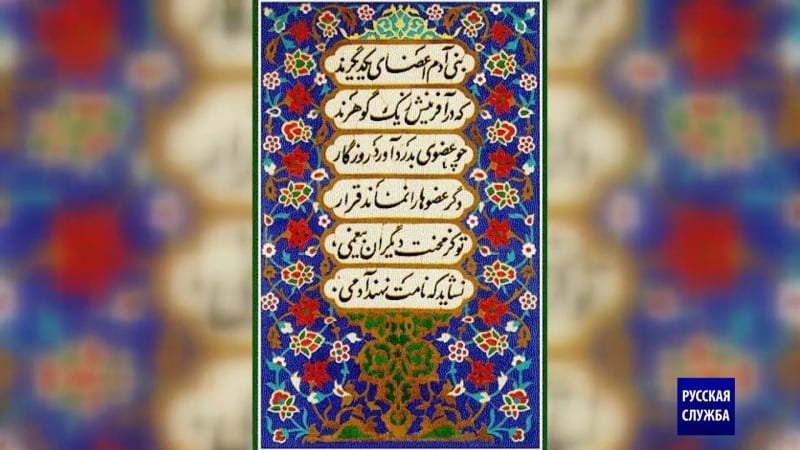 بنی آدم اعضای یکدیگرند
که در آفرینش ز یک گوهرند
چو عضوی بدرد آورد روزگار
دگر عضوها را نماند قرار
تو کز محنت دیگران بیغمی
نشاید که نامت نهند آدمی
РУССКАЯ
СЛУЖБА